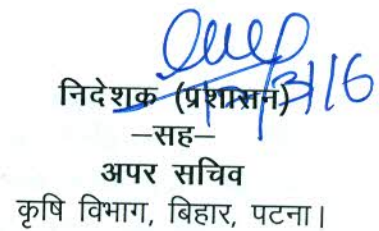 निदेशक (प्रशासन)
–सह–
अपर सचिव
कृषि विभाग, बिहार, पटना।